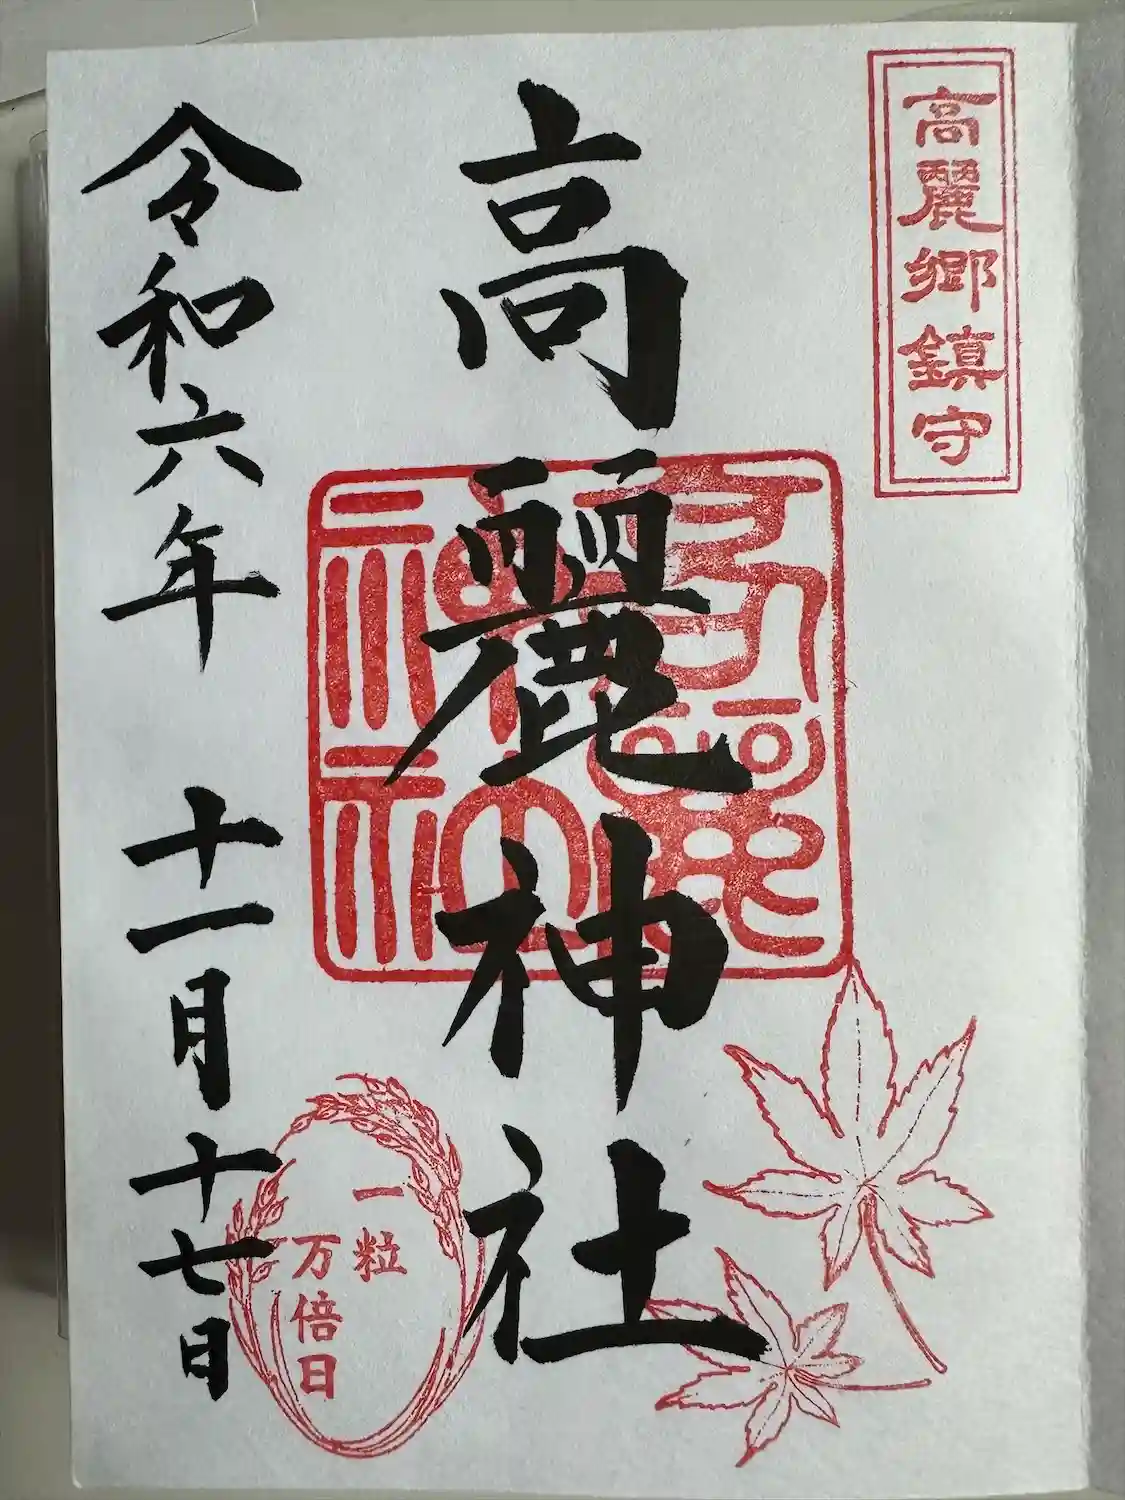 高麗郷鎮守
高麗神社
高麗神社
一粒
万倍日
令和六年 十一月十七日